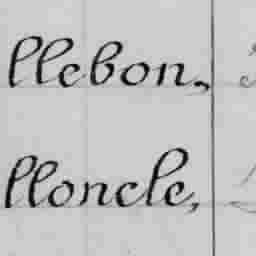 llebon.,
lloncle,